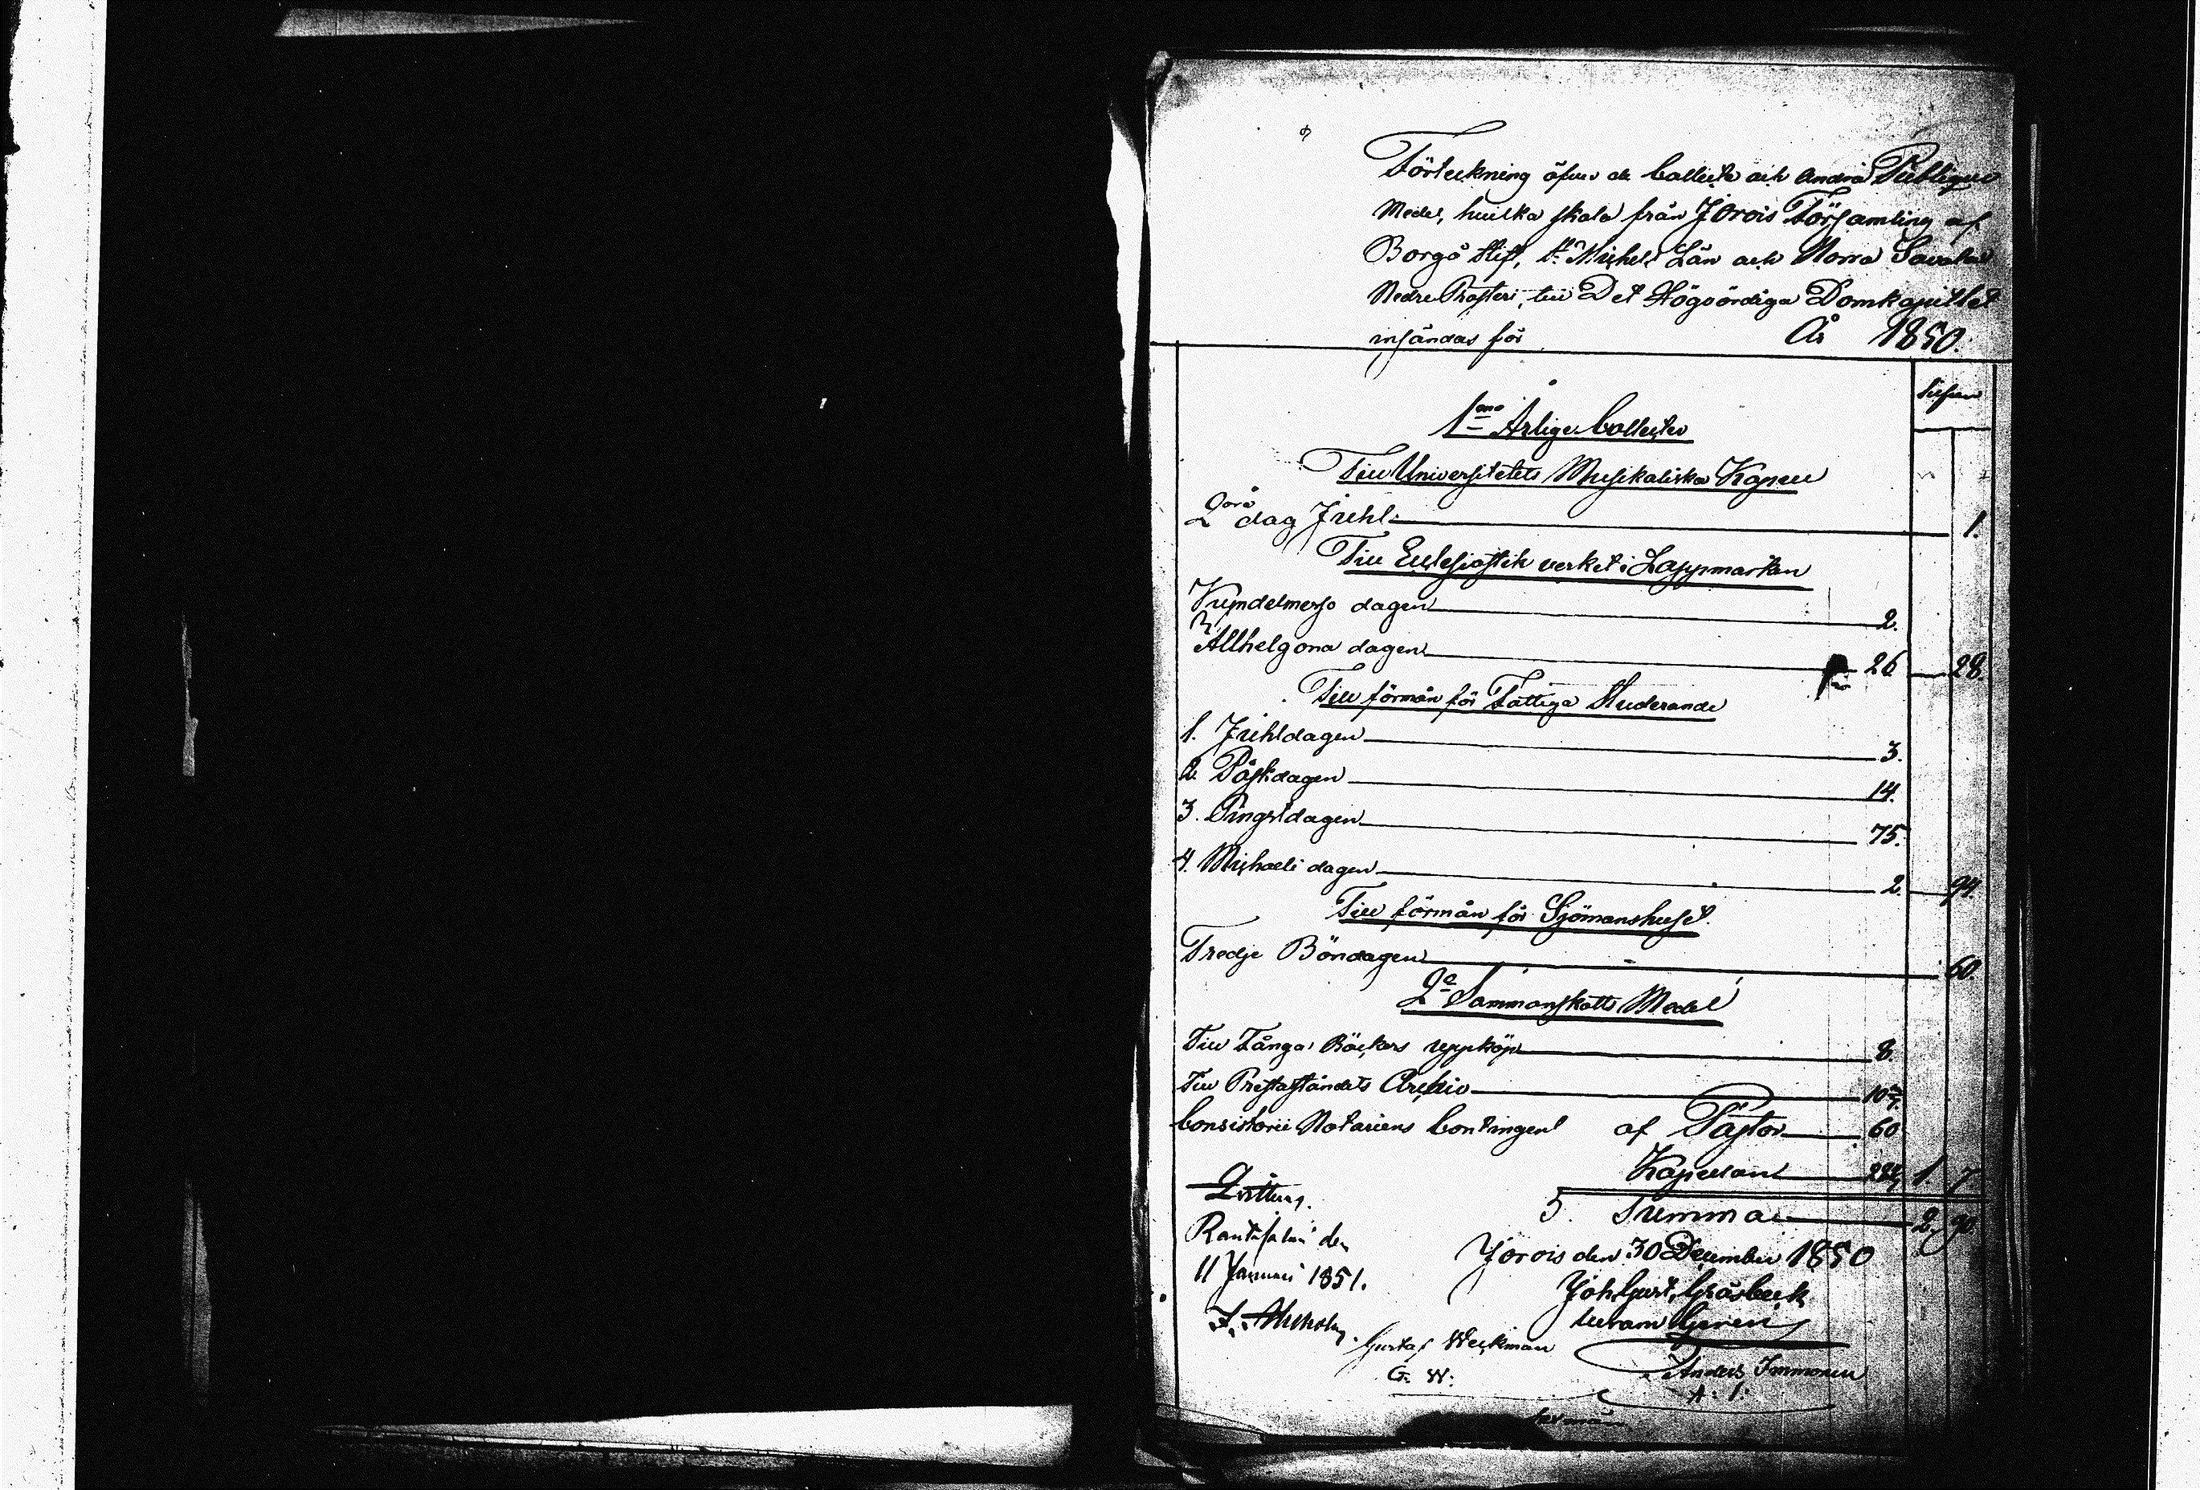 Förteckning öfver de Collecter och Andra Publique
Medel, hvilka skola från Jorois Församling af
Borgå Stift, St. Michels Län och Norra Savolax
Nedre Prosteri, till Det Högvördiga Domkapitlet
insändas för År 1850.
Silfver
1mo Årlige Collecter
Till Universitetets Musikaliska Kapell
2dra dag Juhl 1.
Till Ecclesiastik verket i Lappmarken
Kyndelmesso dagen 2.
Allhelgona dagen 26 28.
Till förmån för Fattiga Studerande
1. Juhldagen 3.
2. Påskdagen 14.
3. Pingstdagen 75.
4. Michaeli dagen 2. 94.
Till förmån för Sjömanshuset.
Tredje Böndagen 60.
2o Sammanskotts Medel
Till Fångars Böckers uppköp 8.
Till Prestaståndets Archiv
Consistorii Notariens Contingent af Pastor 60
Kapellan 1 7
S. Summa 2 90
Qvitteras.
Rantasalmi den
11 Januari 1851.
Jorois den 30 December 1850
Joh Gust. Gråsbeck
Gustaf Weckman
G. W.
Anders Immonen
A. I.